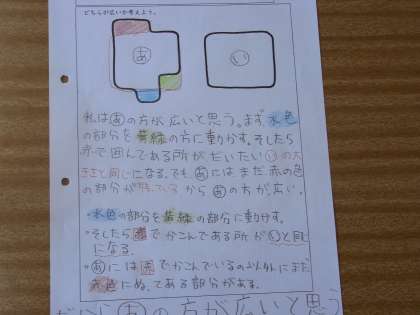 どちらが広いか考えよう。
あ
い
私はあの方が広いと思う。まず水色
の部分を黄緑の方に動かす。そしたら
赤で囲んである所がだいたいいの大
きさと同じになる。でもあにはまだ赤の色
の部分が残っているからあの方が広い。
・水色の部分を黄緑の部分に動かす。
・そしたら赤でかこんである所がいと同じ
になる。
・あには赤でかこんでいるの以外にまだ
赤色にぬってある部分がある。
だからあの方が広いと思う